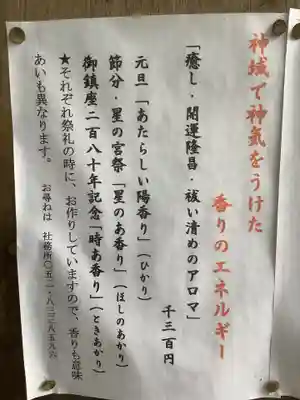 神域で神気をうけた
香りのエネルギー
「癒し・開運隆昌・祓い清めのアロマ」
千三百円
元旦「あたらしい陽香り」(ひかり)
節分・星の宮祭「星のあ香り」(ほしのあかり)
御鎮座二百八十年記念「時あ香り」(ときあかり)
★それぞれ祭礼の時に、お作りしていますので、香りも意味
あいも異なります。
お尋ねは 社務所〇五二・八三二八五九六